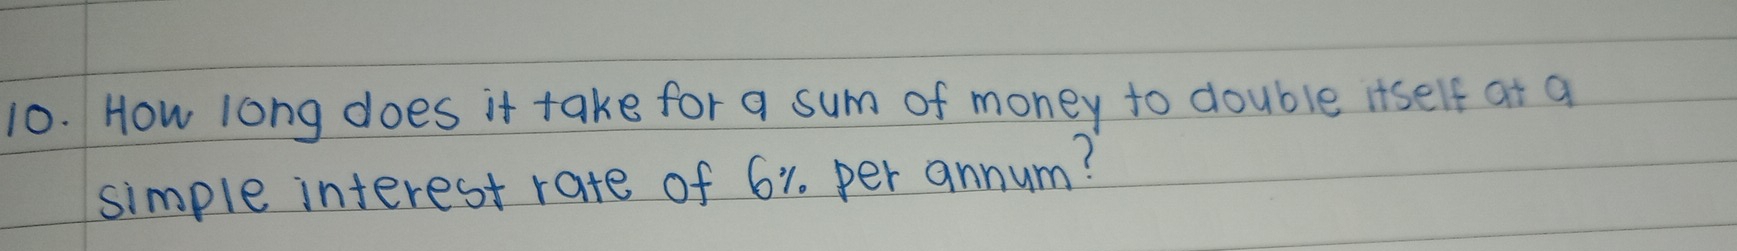 10. How long does it take for a sum of money to double itself at a
simple interest rate of 6% per annum?